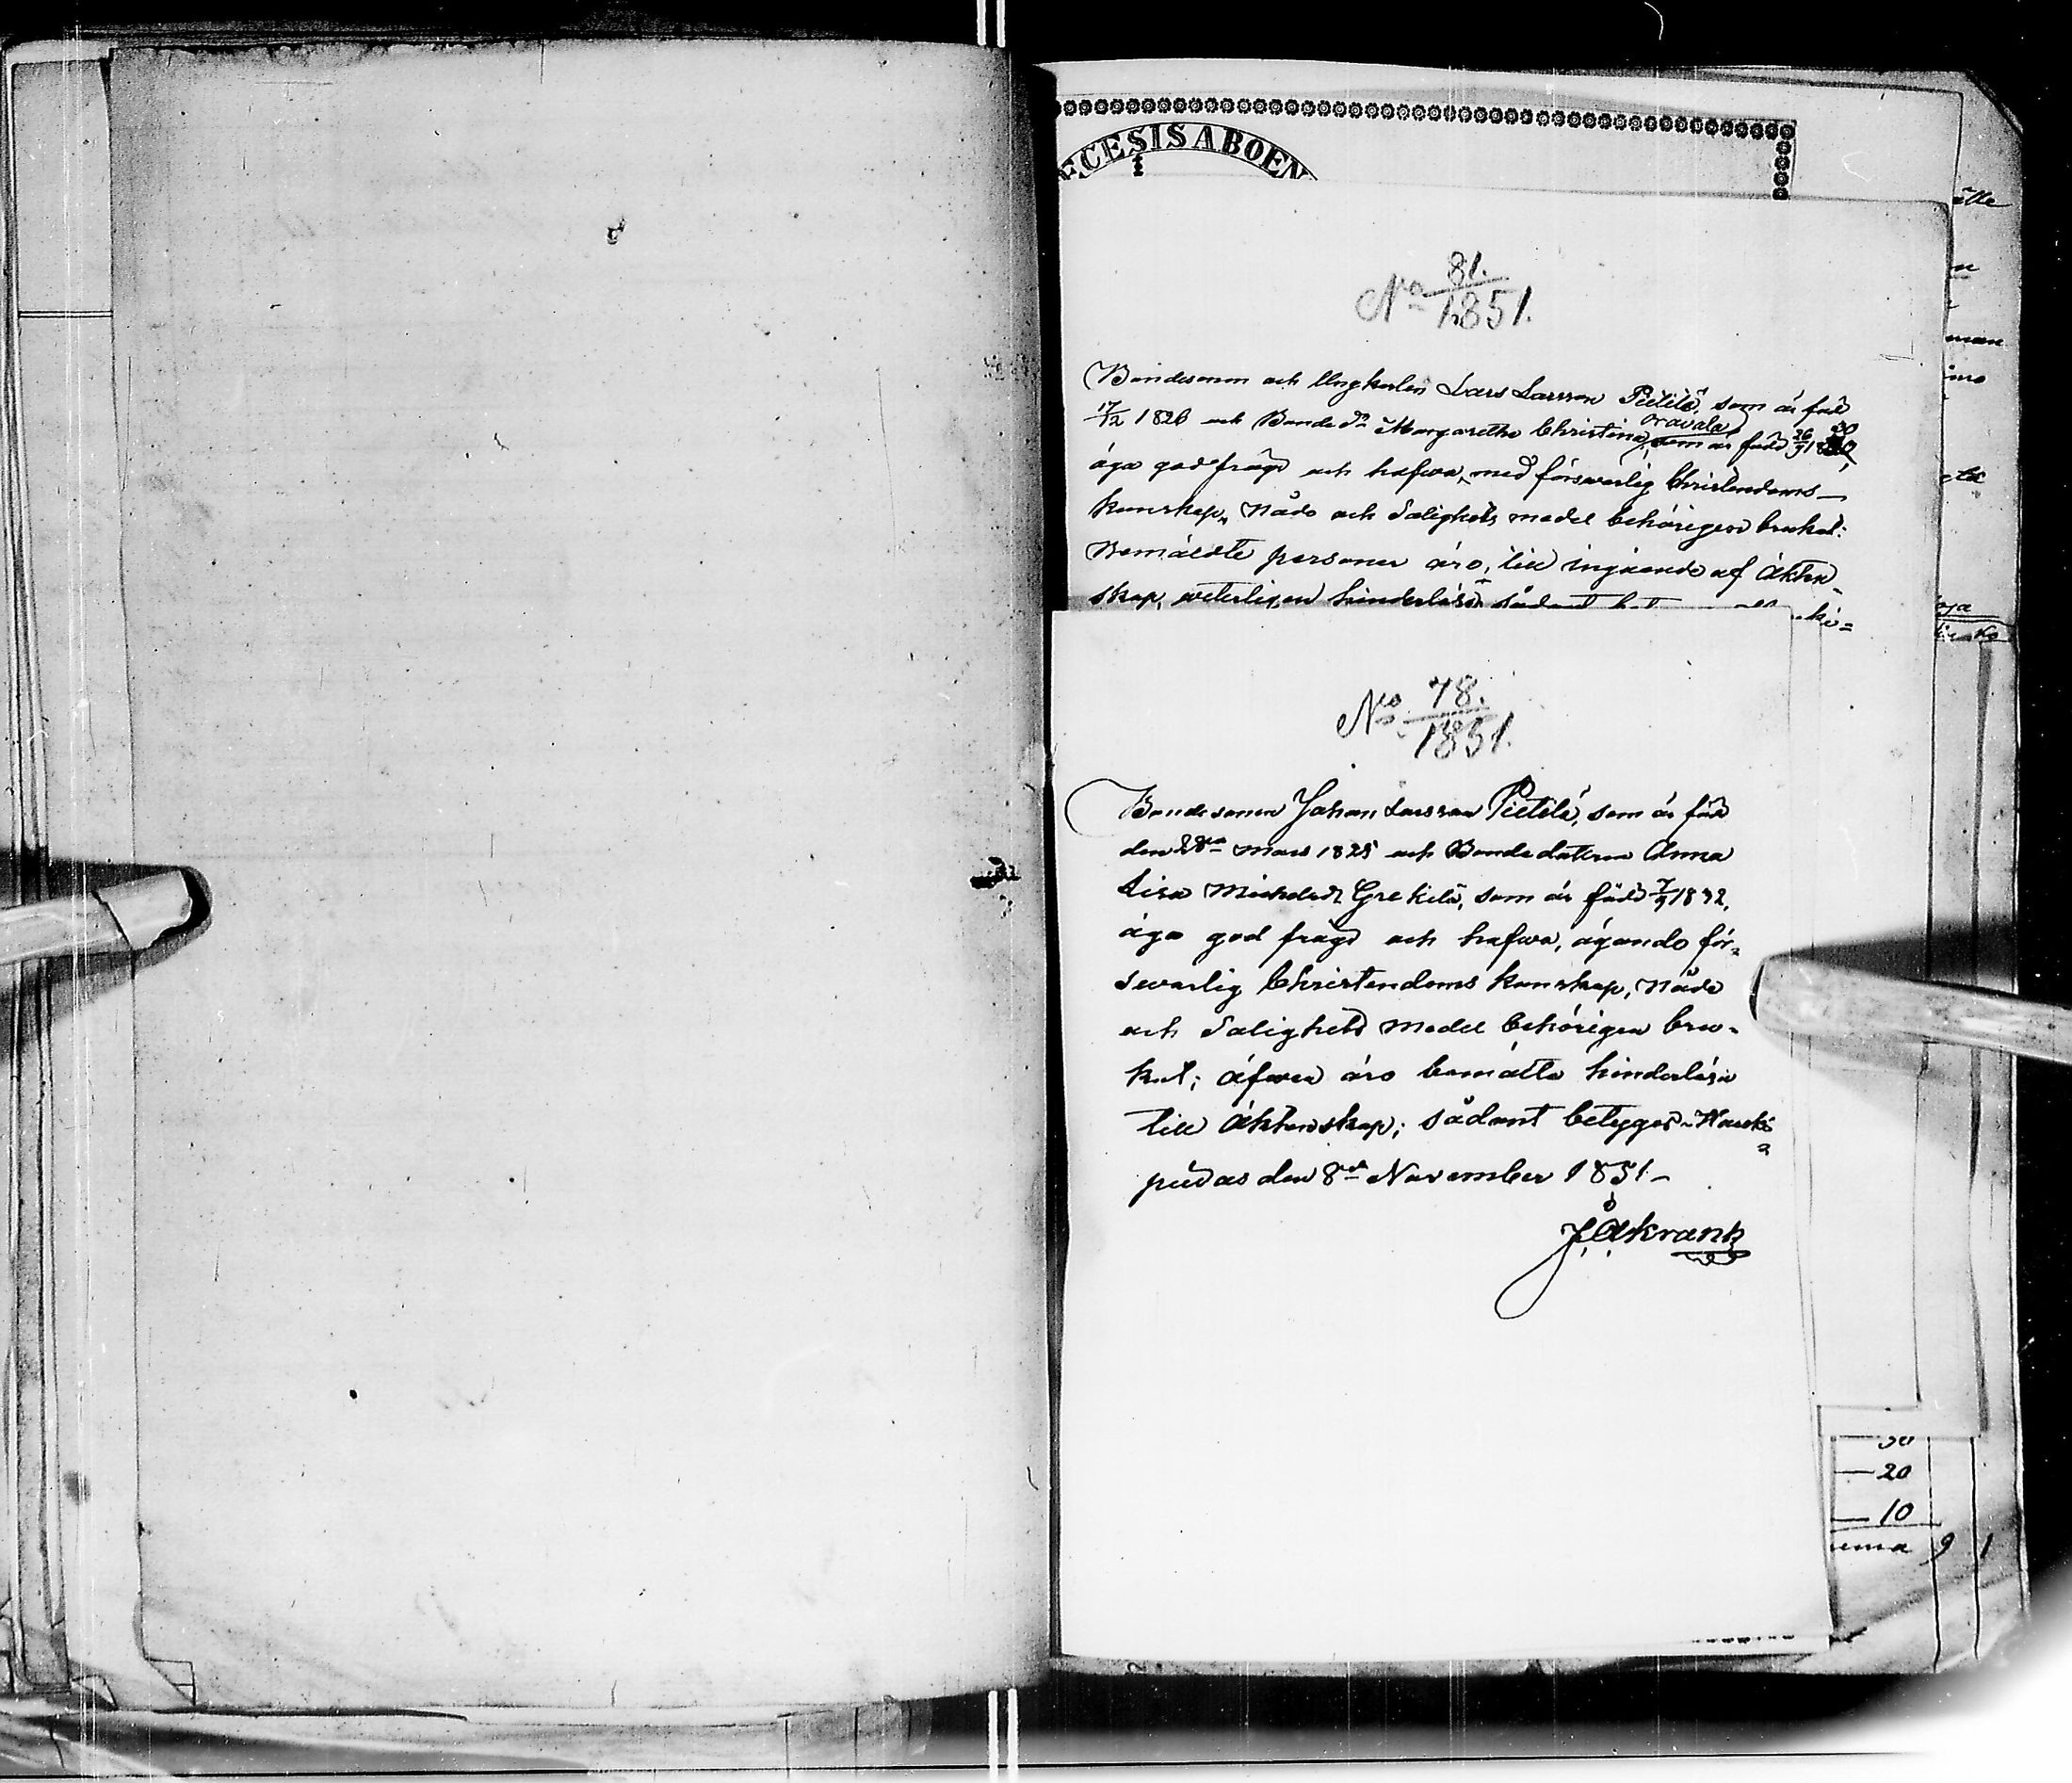 ECESISABOEN
No 81.
1851.
Bondesonen och Ungkarlen Lars Larsson Pietilä, som är född
17/12 1826 och Bonde dr Margaretha Christina Oravala, som är född 26/9 1830,
äga god frägd och hafwa, med försvarlig Christendoms-
kunskap, Nåde och Salighets medel behörigen brukat:
Bemäldte personer äro, till ingående af Äkten-
skap, veterligen hinderlösa, sådant
No 78.
1851.
Bondesonen Johan Larsson Pietilä, som är född
den 28de Mars 1825 och Bondedottren Anna
Lisa Michelsdr Grekilä, som är född 7/9 1832,
äga god frägd och hafwa, ägande för-
svarlig Christendoms kunskap, Nåde
och Salighets medel behörigen bru-
kat; äfwen äro bemälte hinderlösa
till Äktenskap; sådant betygas. Hauki-
pudas den 8de November 1851.
J. Åkrantz
20
10
9 1